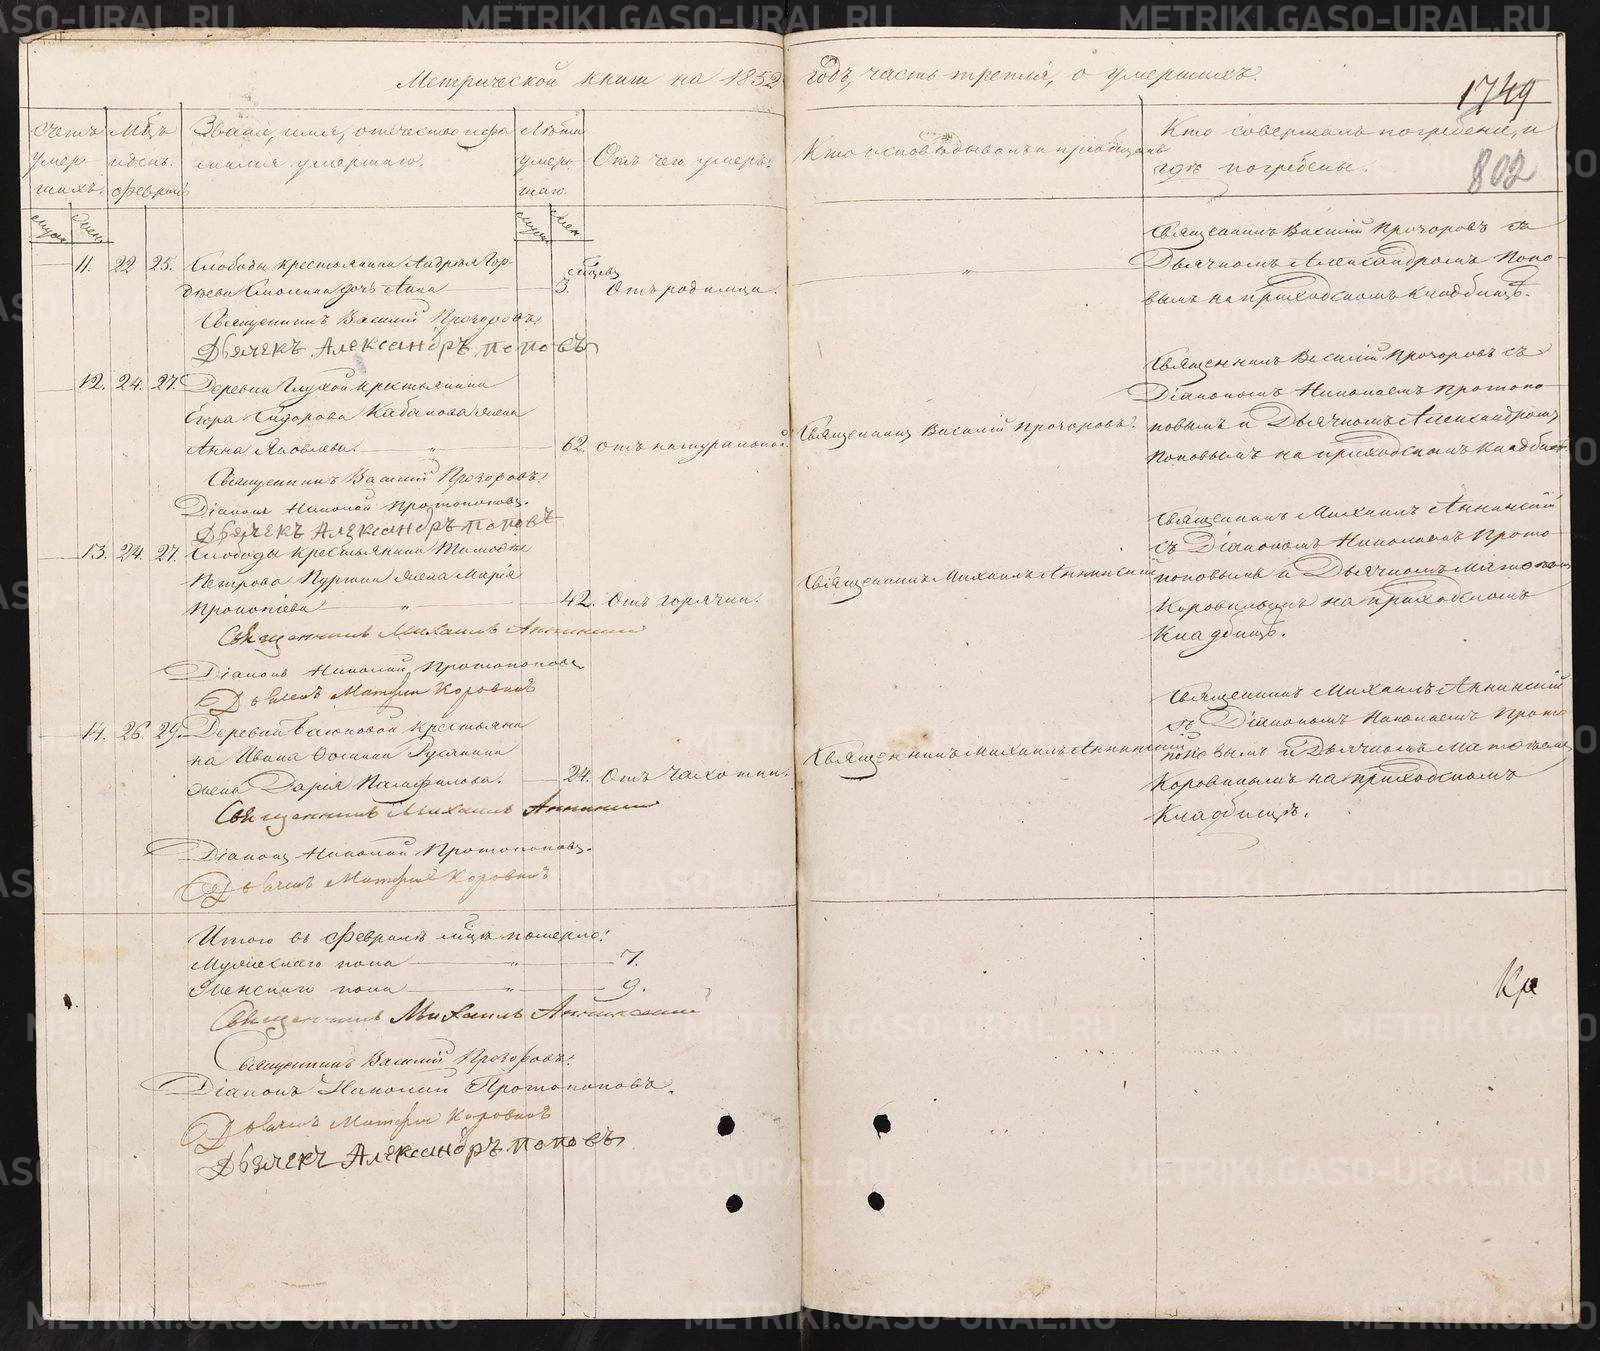 Метрической книги на 1852 годъ, часть третія, о умершихъ.
1749
802
Счетъ умершихъ.
Мѣсяцъ и день.
Февраль
Званіе, имя, отечество и фамилія умершаго.
Лѣта умершаго.
Отъ чего умеръ.
Кто исповѣдывалъ и пріобщалъ
Кто совершалъ погребеніе, и гдѣ погребены.
11. 22 25. Слободы крестьянина Андрея Гор-
дѣева Смолина дочь Анна 3. Отъ родимца.
Священникъ Василій Прозоровъ.
Дьячекъ Александръ Поповъ
Священникъ Василій Прозоровъ съ
Дьячкомъ Александромъ Попо-
вымъ на приходскомъ кладбищѣ.
12. 24. 27. Деревни Глухой крестьянина
Егора Сидорова Кабанова жена
Анна Яковлева. 62. отъ натуральной.
Священникъ Василій Прозоровъ.
Діаконъ Николай Протопоповъ.
Дьячекъ Александръ Поповъ
Священникъ Василій Прозоровъ.
Священникъ Василій Прозоровъ съ
Діакономъ Николаемъ Протопо-
повымъ и Дьячкомъ Александромъ
Поповымъ на приходскомъ кладбищѣ.
13. 24. 27. Слободы крестьянина Тимофея
Петрова Пургина жена Марія
Прокопіева 42. Отъ горячки.
Священникъ Михаилъ Аннинскій
Діаконъ Николай Протопоповъ
Дьячекъ Матфій Коровинъ
Священникъ Михаилъ Аннинскій
Священникъ Михаилъ Аннинскій
съ Діакономъ Николаемъ Прото-
поповымъ и Дьячкомъ Матфѣемъ
Коровинымъ на приходскомъ
кладбищѣ.
14. 26. 29. Деревни крестьяни-
на Ивана жена Дарія Памфилова. 24. Отъ чахотки.
Священникъ Михаилъ Аннинскій
Діаконъ Николай Протопоповъ.
Дьячекъ Матфій Коровинъ
Священникъ Михаилъ Аннинскій
Священникъ Михаилъ Аннинскій
съ Діакономъ Николаемъ Прото-
поповымъ и Дьячкомъ Матфѣемъ
Коровинымъ на приходскомъ
кладбищѣ.
Итого въ Февралѣ мцѣ померло:
Мужескаго пола 7.
Женскаго пола 9.
Священникъ Михаилъ Аннинскій
Священникъ Василій Прозоровъ.
Діаконъ Николай Протопоповъ.
Дьячекъ Матфій Коровинъ
Дьячекъ Александръ Поповъ
METRIKI.GASO-URAL.RU